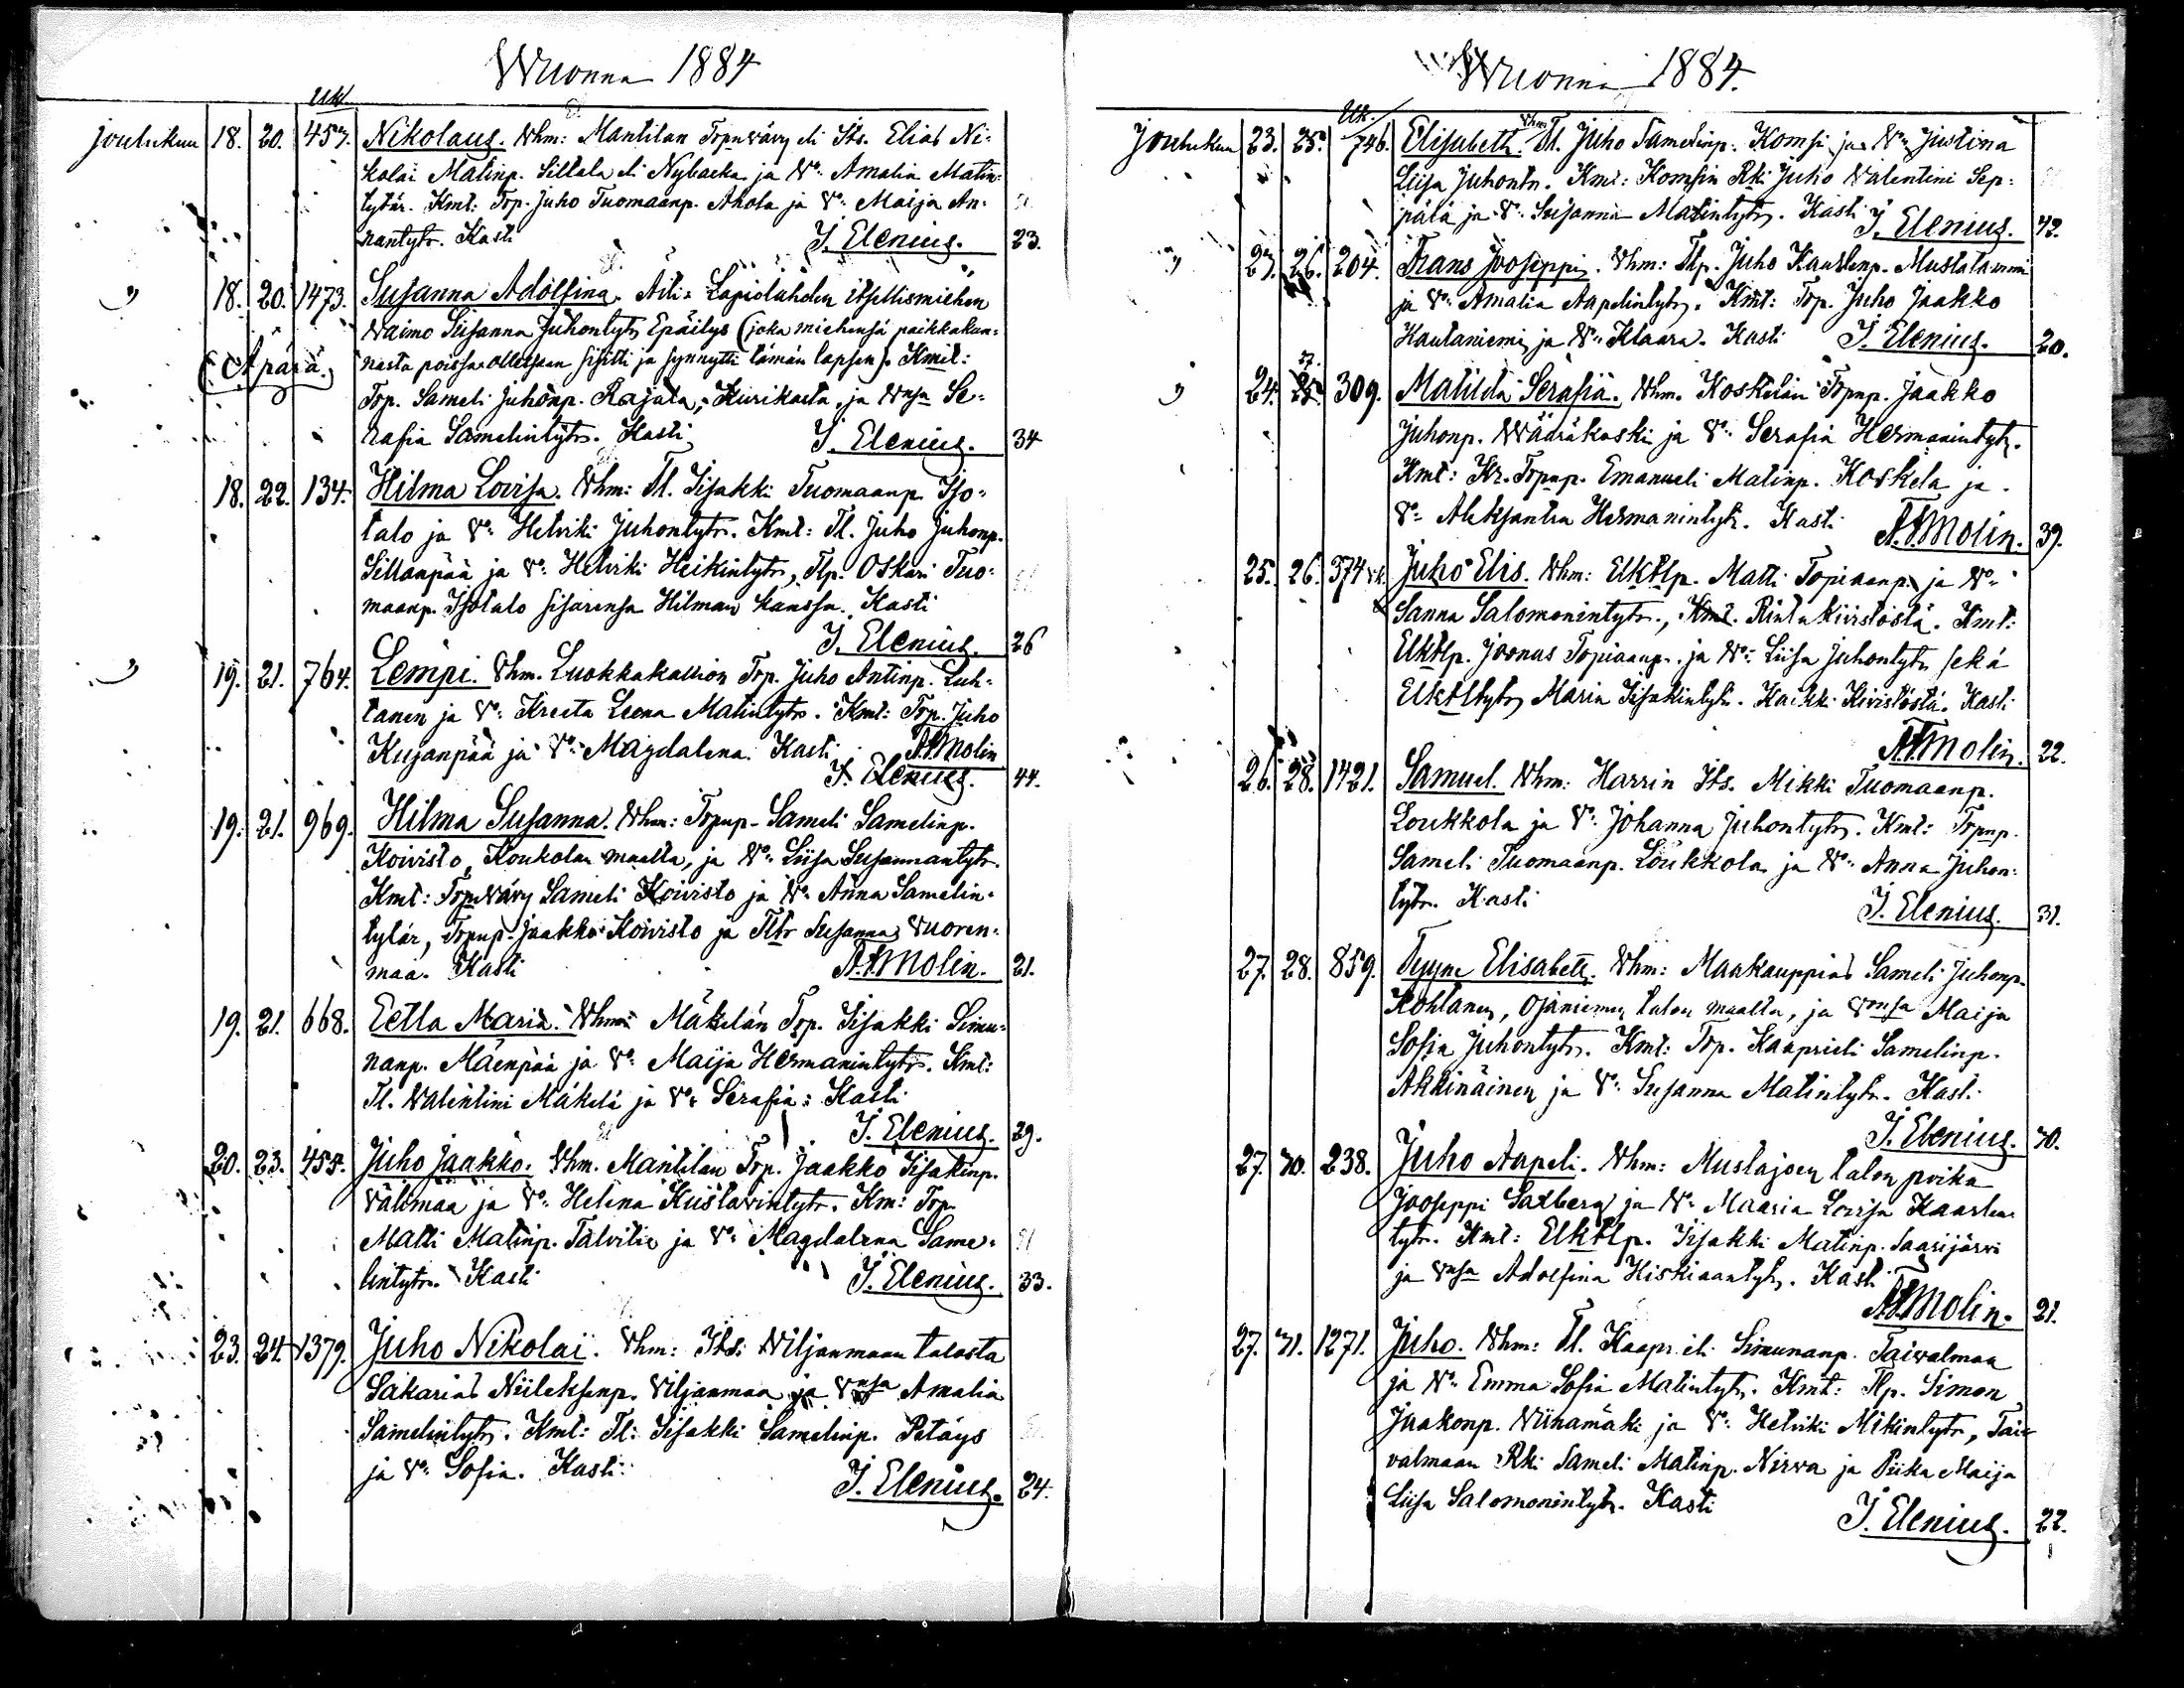 Wuonna 1884
Uk.
Joulukuu 18. 20. 457. Nikolaus. Vhm: Mantilan Tpnwävy eli Its. Elias Ni-
kolai Matinp. Sillala eli Nybacka ja Vo: Amalia Matin-
tytär. Kmt: Trp. Juho Tuomaanp. Ahola ja Vo: Maija An-
nantytr. Kasti J. Elenius. 23.
" 18. 20. 1473. Susanna Adolfina. Äiti: Lapiolahden itsellismiehen
(Äpärä.)
Waimo Susanna Juhontytr Epäilys (joka miehensä paikkakun-
nasta poissa ollessaan siitti ja synnytti tämän lapsen). Kmit:
Trp. Sameli Juhonp. Rajala, Kurikasta, ja Wnsa Se-
rafia Samelintytr. Kasti J. Elenius. 34
18. 22. 134. Hilma Lovisa. Vhm: Tl. Iisakki Tuomaanp. Iso-
talo ja Vo: Helviki Juhontytr. Kmt: Tl. Juho Juhonp.
Sillanpää ja Vo: Helviki Heikintytr, Tlp. Oskari Tuo-
maanp. Isotalo sisarensa Hilman kanssa. Kasti
J. Elenius. 26
" 19. 21. 764. Lempi. Vhm. Luokkakallion Trp. Juho Antinp. Luh-
tanen ja Vo: Kreeta Leena Matintytr. Kmt: Trp. Juho
Kujanpää ja Vo: Magdalena. Kasti A. F. Molin
J. Elenius. 44.
19. 21. 969. Hilma Susanna. Vhm: Trpnp. Sameli Samelinp.
Koivisto, Koukolan maalta, ja Vo: Liisa Susannantytr.
Kmt: Trpnwävy Sameli Koivisto ja Vo: Anna Samelin-
tytär, Trpnp. Jaakko Koivisto ja Tltr Susanna Vuoren-
maa. Kasti A. F. Molin. 21.
19. 21. 668. Eetla Maria. Vhm: Mäkelän Trp. Iisakki Simu-
nanp. Mäenpää ja Vo: Maija Hermanintytr. Kmt:
Tl. Valentini Mäkelä ja Vo: Serafia: Kasti
J. Elenius. 29.
20. 23. 455. Juho Jaakko. Vhm. Mantilan Trp. Jaakko Iisakinp.
Välimaa ja Vo: Helena Kustavintytr. Km: Trp.
Matti Matinp. Talvitie ja Vo: Magdalena Same-
lintytr. Kasti J. Elenius. 33.
23. 24. 1379. Juho Nikolai. Vhm: Its: Viljanmaan talosta
Sakarias Niileksenp. Viljanmaa ja Vnsa Amalia
Samelintytr. Kmt: Tl: Iisakki Samelinp. Petäys
ja Vo: Sofia. Kasti: J. Elenius. 24.
Wuonna 1884.
Uk.
Joulukuu 23. 25. 746. Elisabeth. Vhm Tl. Juho Samelinp. Komsi ja Vo: Justina
Liisa Juhontr. Kmt: Komsin Rki Juho Valentini Sep-
pälä ja Vo: Susanna Matintytr. Kasti J. Elenius. 42.
" 23. 26. 204. Frans Jooseppi. Vhm: Tlp. Juho Kaarlenp. Mustalammi
ja Vo: Amalia Aapelintytr. Kmt: Trp. Juho Jaakko
Kautaniemi ja Vo: Klaara. Kasti J. Elenius. 20.
27.
" 24. 25. 309. Matilda Serafia. Vhm. Koskelan Trpnp. Jaakko
Juhonp. Wääräkoski ja Vo: Serafia Hermanintytr.
Kmt: Kr. Trpnp. Emanueli Matinp. Koskela ja
Vo: Aleksantra Hermanintytr. Kasti A. F. Molin. 39.
25. 26. 374 Juho Elis. Vhm: Elktlp. Matti Topiaanp. ja Vo:
Sanna Salomonintytr., Kmt. Rintakiivistöstä. Kmt:
Elktlp. Joonas Topiaanp. ja Vo: Liisa Juhontytr sekä
Elktltytr Maria Iisakintytr. Kaikki Kivistöstä. Kasti
A. F. Molin. 22.
26. 28. 1421. Samuel. Vhm: Harrin Its. Mikki Tuomaanp.
Loukkola ja Vo: Johanna Juhontytr. Kmt: Trpnp.
Sameli Tuomaanp. Loukkola ja Vo: Anna Juhon-
tytr. Kasti J. Elenius. 31.
27. 28. 859. Tyyne Elisabeth. Vhm: Maakauppias Sameli Juhonp.
Kohtanen, Ojaniemen talon maalta, ja Vnsa Maija
Sofia Juhontytr. Kmt: Trp. Kaaprieli Samelinp.
Akkinäinen ja Vo: Susanna Matintytr. Kasti
J. Elenius. 30.
27. 30. 238. Juho Aapeli. Vhm: Mustajoen talon poika
Jooseppi Saxberg ja Vo: Maaria Lovisa Kaarlen-
tytr. Kmt: Elktlp. Iisakki Matinp. Saarijärvi
ja Vnsa Adolfina Hiskiaantytr. Kasti
A. F. Molin. 21.
27. 31. 1271. Juho. Vhm: Tl. Kaaprieli Simunanp. Taivalmaa
ja Vo: Emma Sofia Matintytr. Kmt: Tlp. Simon
Jaakonp. Viinamäki ja Vo: Helviki Mikintytr, Tai-
valmaan Rki Sameli Matinp. Nirva ja Piika Maija
Liisa Salomonintytr. Kasti J. Elenius. 22.